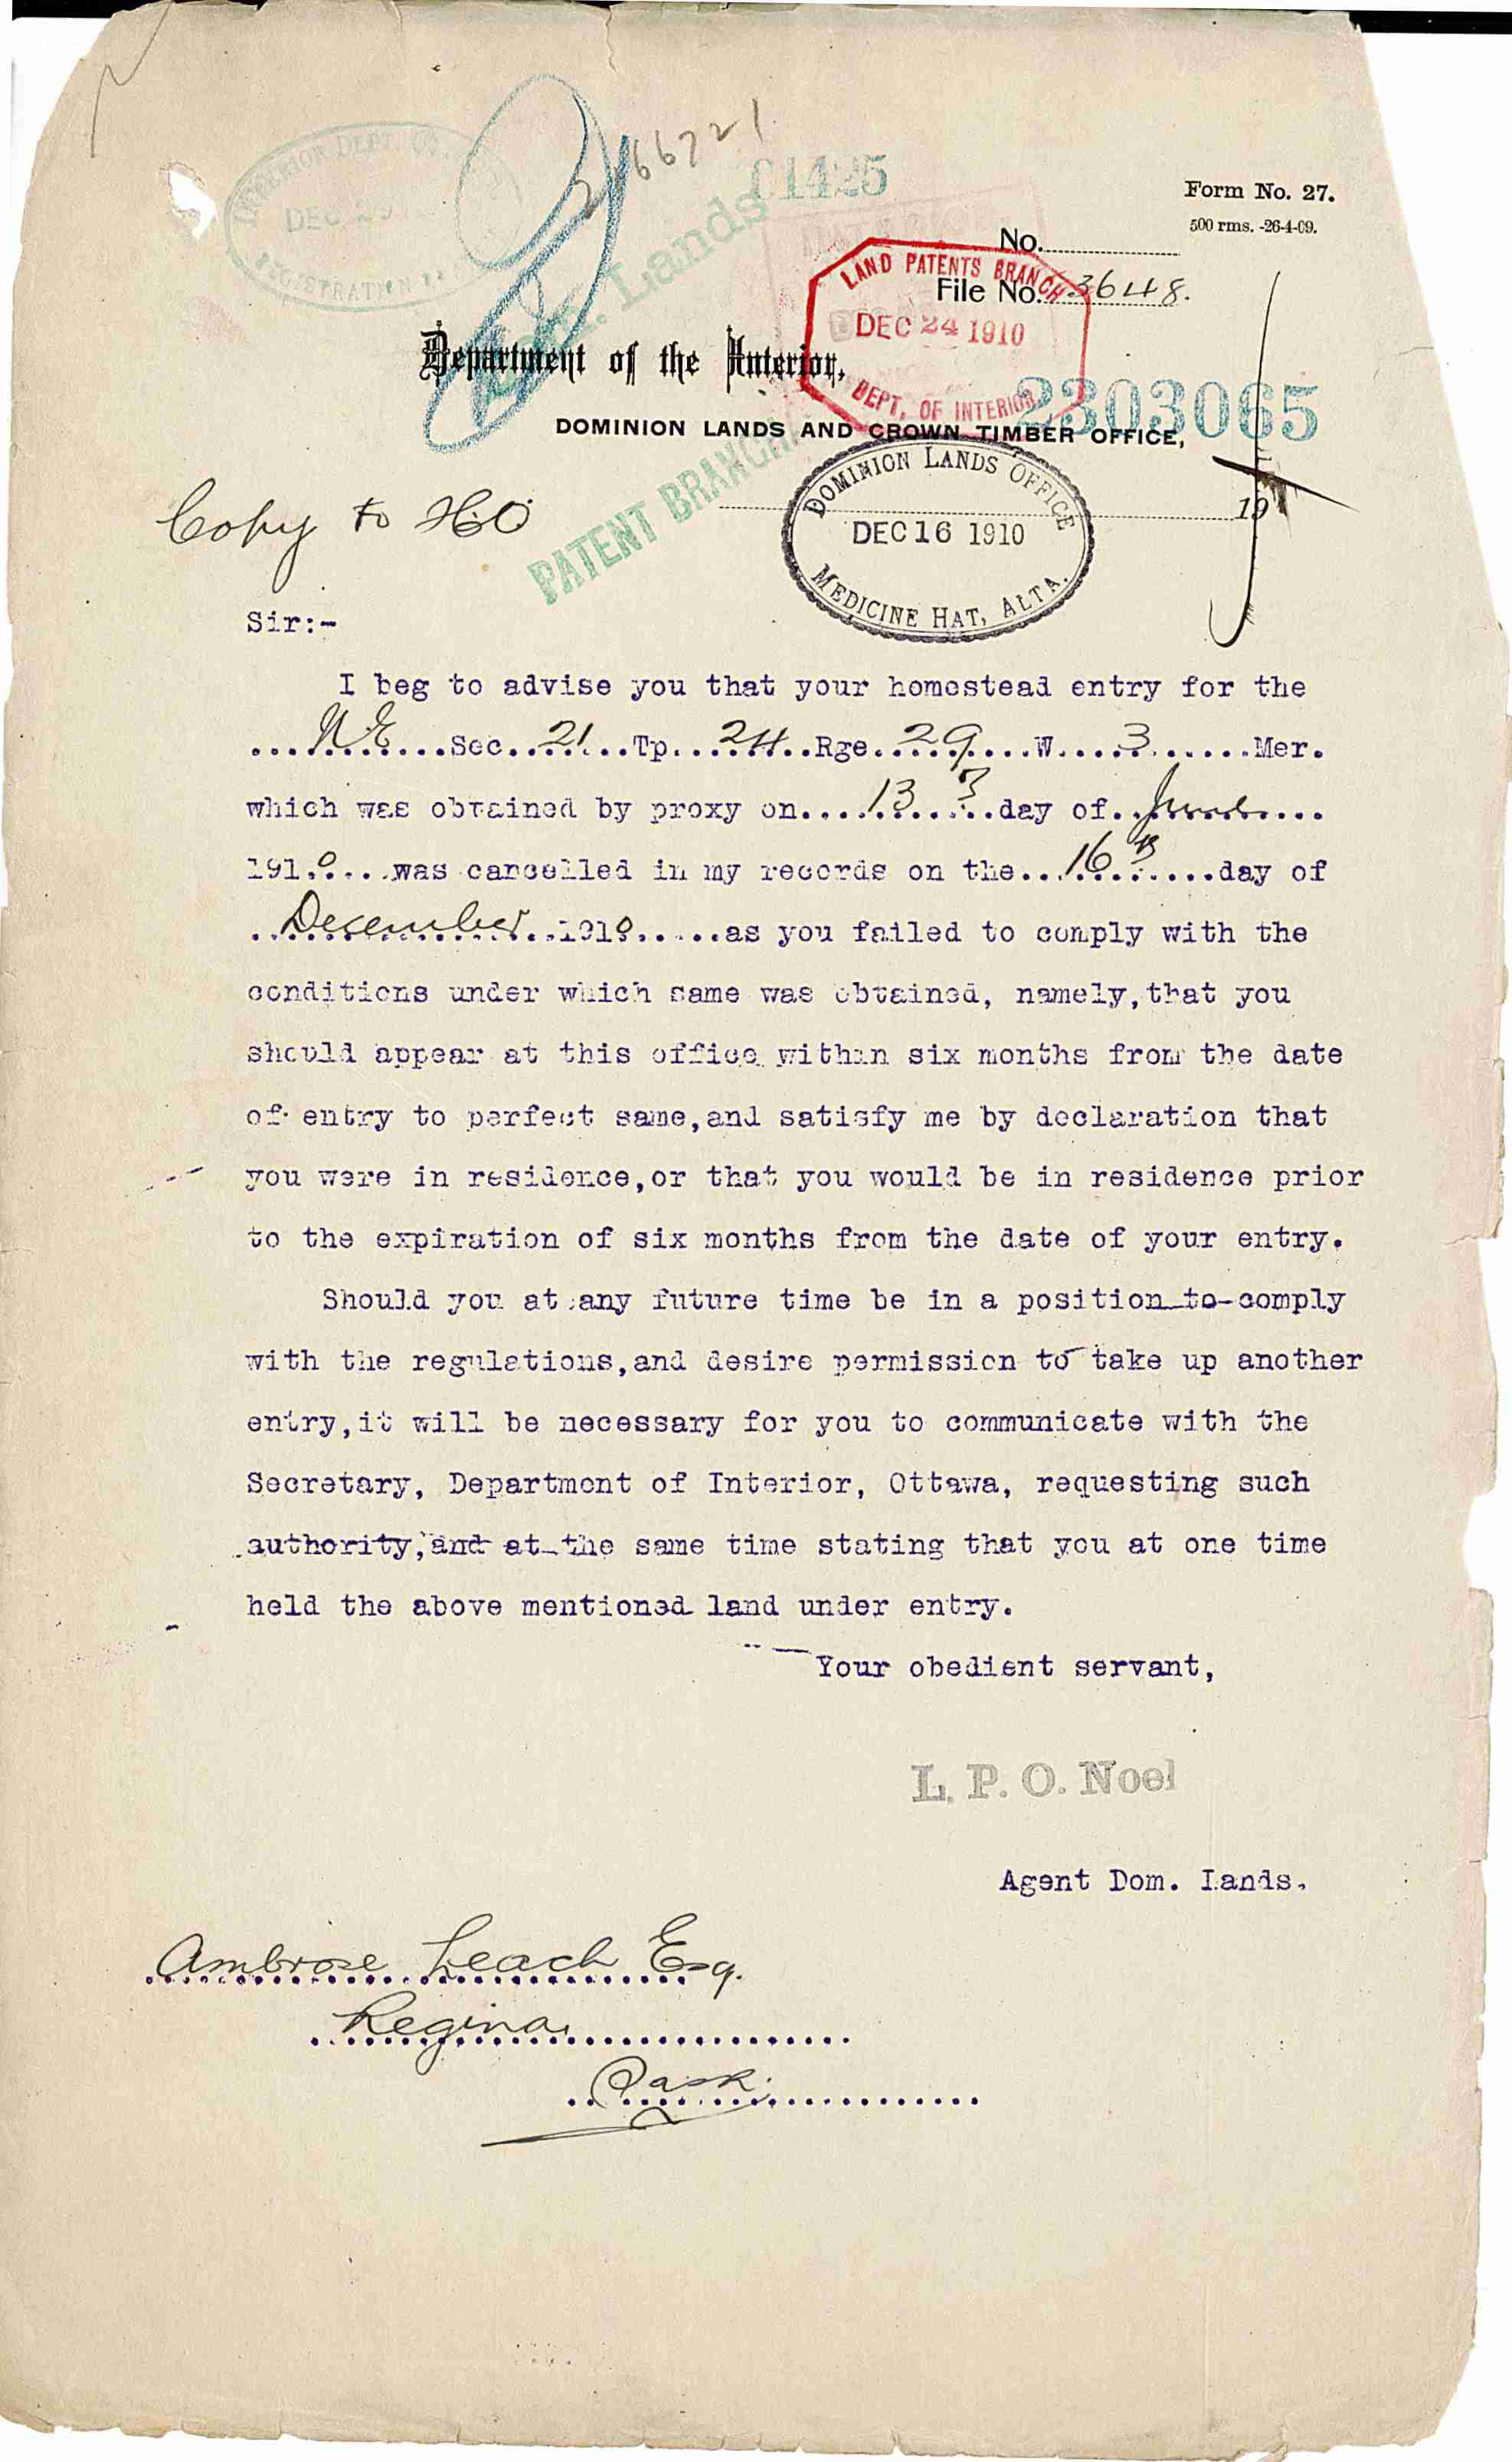 2166721
C1425
Form No. 27.
500 rms. -26-4-09.
INTERIOR DEPT.
DEC
REGISTRATION
No.
LAND PATENTS BRANCH
File No. 3648.
DEC 24 1910
Lands
Department of the Interior,
DEPT. OF INTERIOR
2303065
DOMINION LANDS AND CROWN TIMBER OFFICE,
PATENT BRANCH
DOMINION LANDS OFFICE
Copy to HO
19
DEC 16 1910
MEDICINE HAT, ALTA.
Sir:-
I beg to advise you that your homestead entry for the
....N.E.....Sec...21...Tp...24..Rge..29....W....3......Mer.
which was obtained by proxy on....13......day of..June....
1910....was cancelled in my records on the...16th....day of
..December..1910.....as you failed to comply with the
conditions under which same was obtained, namely,that you
should appear at this office within six months from the date
of entry to perfect same,and satisfy me by declaration that
you were in residence,or that you would be in residence prior
to the expiration of six months from the date of your entry.
Should you at any future time be in a position to comply
with the regulations,and desire permission to take up another
entry,it will be necessary for you to communicate with the
Secretary, Department of Interior, Ottawa, requesting such
authority,and at the same time stating that you at one time
held the above mentioned land under entry.
Your obedient servant,
L. P. O. Noel
Agent Dom. Lands.
Ambrose Leach Esq.
Regina
Sask.